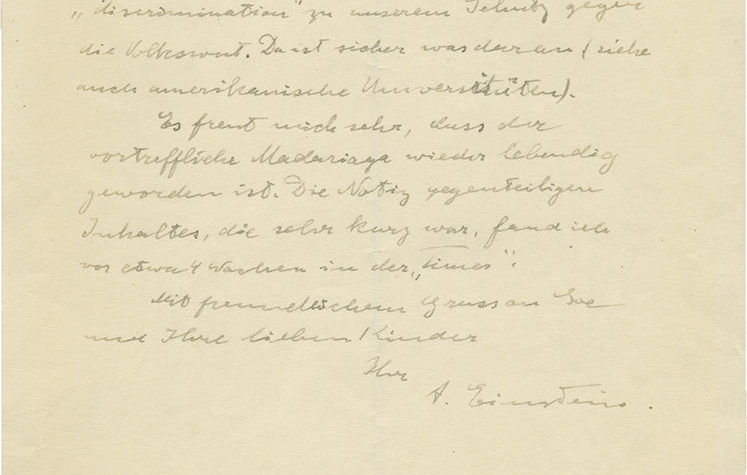 „discrimination" zu unserem Schutz gegen
die Volkswut. Da ist sicher was daran (siehe
auch amerikanische Universitäten).
Es freut mich sehr, dass der
vortreffliche Madariaga wieder lebendig
geworden ist. Die Notiz gegenteiligen
Inhaltes, die sehr kurz war, fand ich
vor etwa 4 Wochen in der „Times".
Mit freundlichem Gruss an Eve
und Ihre lieben Kinder
Ihr
A. Einstein.